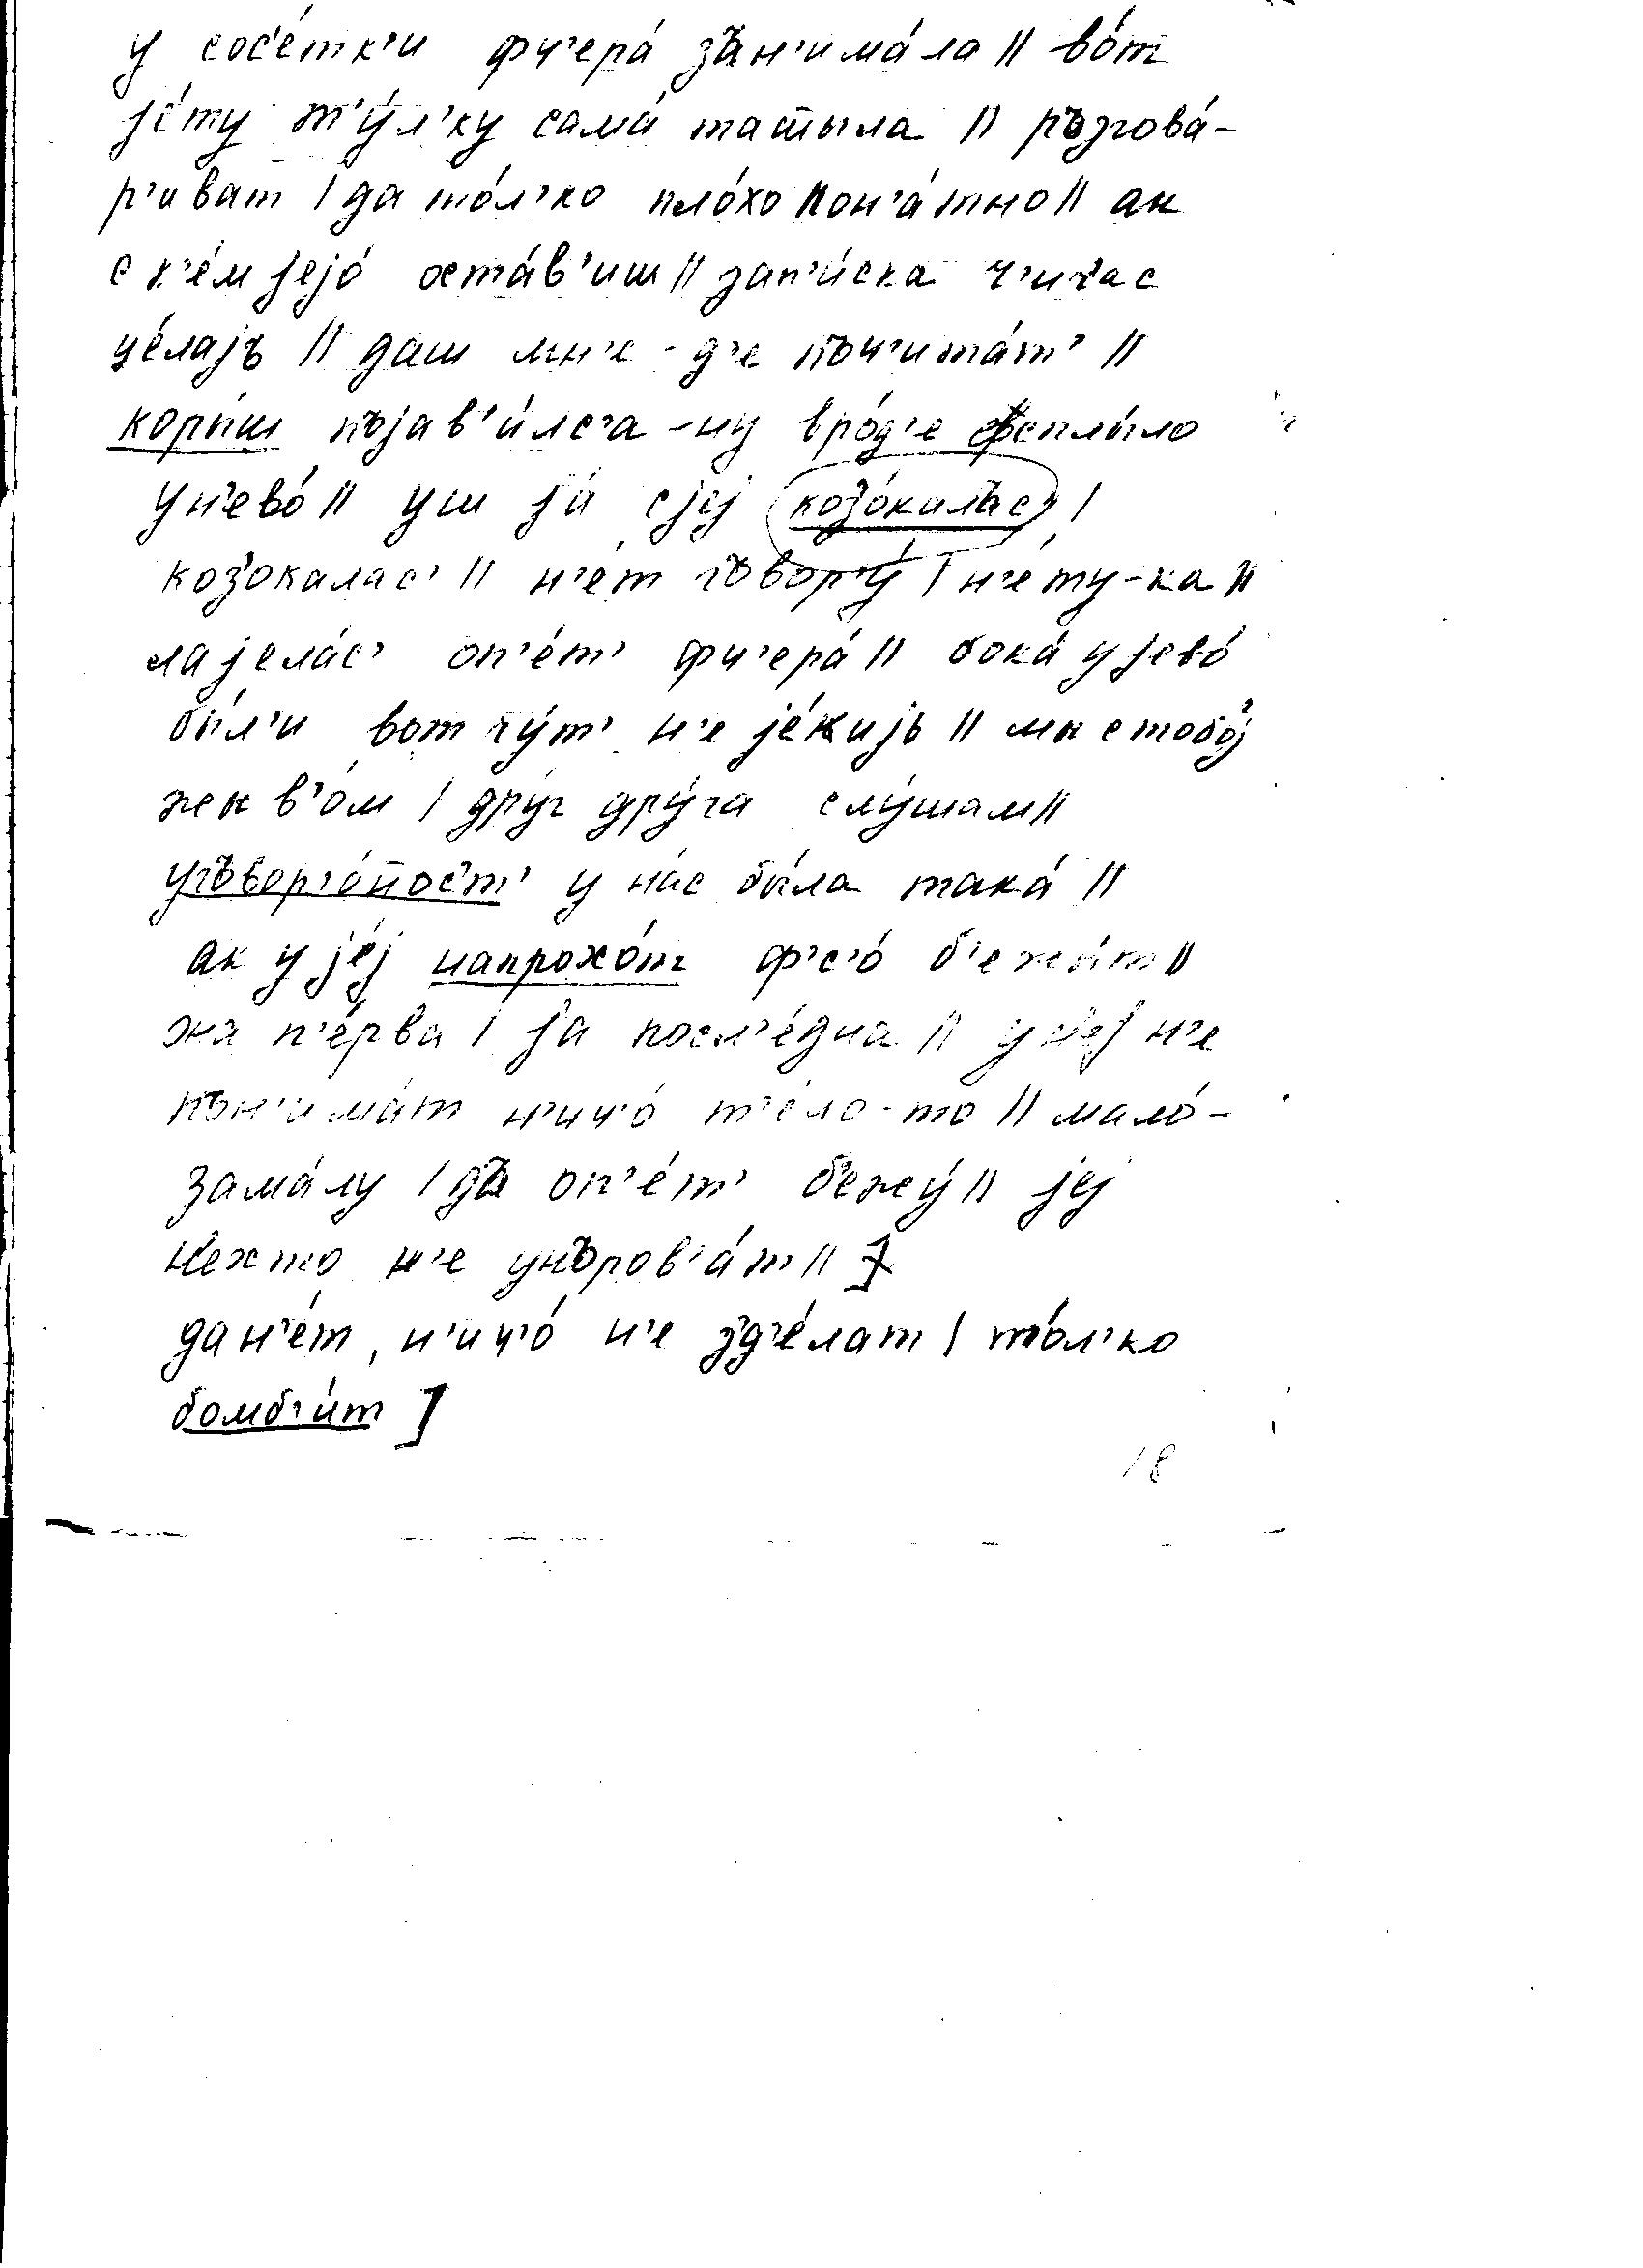 у сос'е́тк'и фч'ера́ зън'има́ла || во́т
jе́ту т'у́л'ку сама́ таты́ла || ръзгова́-
р'иват | да то́л'ко пло́хо пон'а́тно || ак
с к'е́м jеjо́ оста́в'иш || зап'и́ска ч'ич'ас
це́лаjъ || даш мн'е-д'е поч'ита́т' ||
коры́ш пъjав'и́лс'а - ну вро́д'е фсплы́ло
у н'ево́ || уш jа́ с jеj коз'о́калъс' |
коз'окалас' || н'е́т гъвор'у́ | н'е́ту-ка ||
лаjела́с' оп'е́т' фч'ера́ || бока́ у jево́
бы́л'и вот чу́т' н'е jе́киjь || мы с тобо́j
жыв'о́м | дру́г дру́га слу́шам ||
угъвор'о́ност' у на́с бы́ла така́ ||
ак у jе́j напрохо́т ф'с'о́ б'ежы́т ||
она п'е́рва | jа посл'е́дна || у н'еj н'е
пън'има́т н'ич'о́ т'е́ло-то || мало́-
зама́лу | да оп'е́т' б'ежу́ || jеj
н'ехто н'е унъров'а́т ||
да н'е́т, н'ич'о́ н'е зд'е́лат | то́л'ко
бомб'и́т ]
18